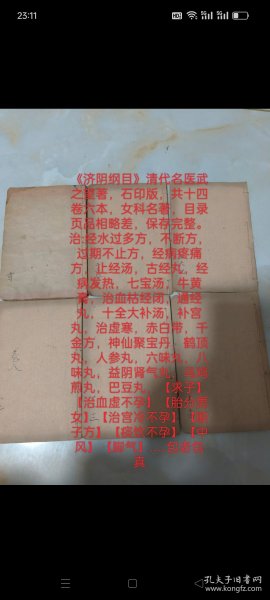 23:11
《济阴纲目》清代名医武
之望著，石印版，共十四
卷六本，女科名著，目录
页品相略差，保存完整。
治:经水过多方，不断方，
过期不止方，经病疼痛
方，止经汤，古经丸，经
病发热，七宝汤，牛黄
，治血枯经闭，通经
丸，十全大补汤，补宫
丸，治虚寒，赤白带，千
金方，神仙聚宝丹，鹤顶
丸，人参丸，六味丸，八
味丸，益阴肾气丸，
煎丸，巴豆丸，【求子】
【治血虚不孕】【胎分男
女】【治宫冷不孕】
子方】【痰多不孕】【中
风】【脚气】...包老包
真
孔夫子旧书网
www.kongfz.com